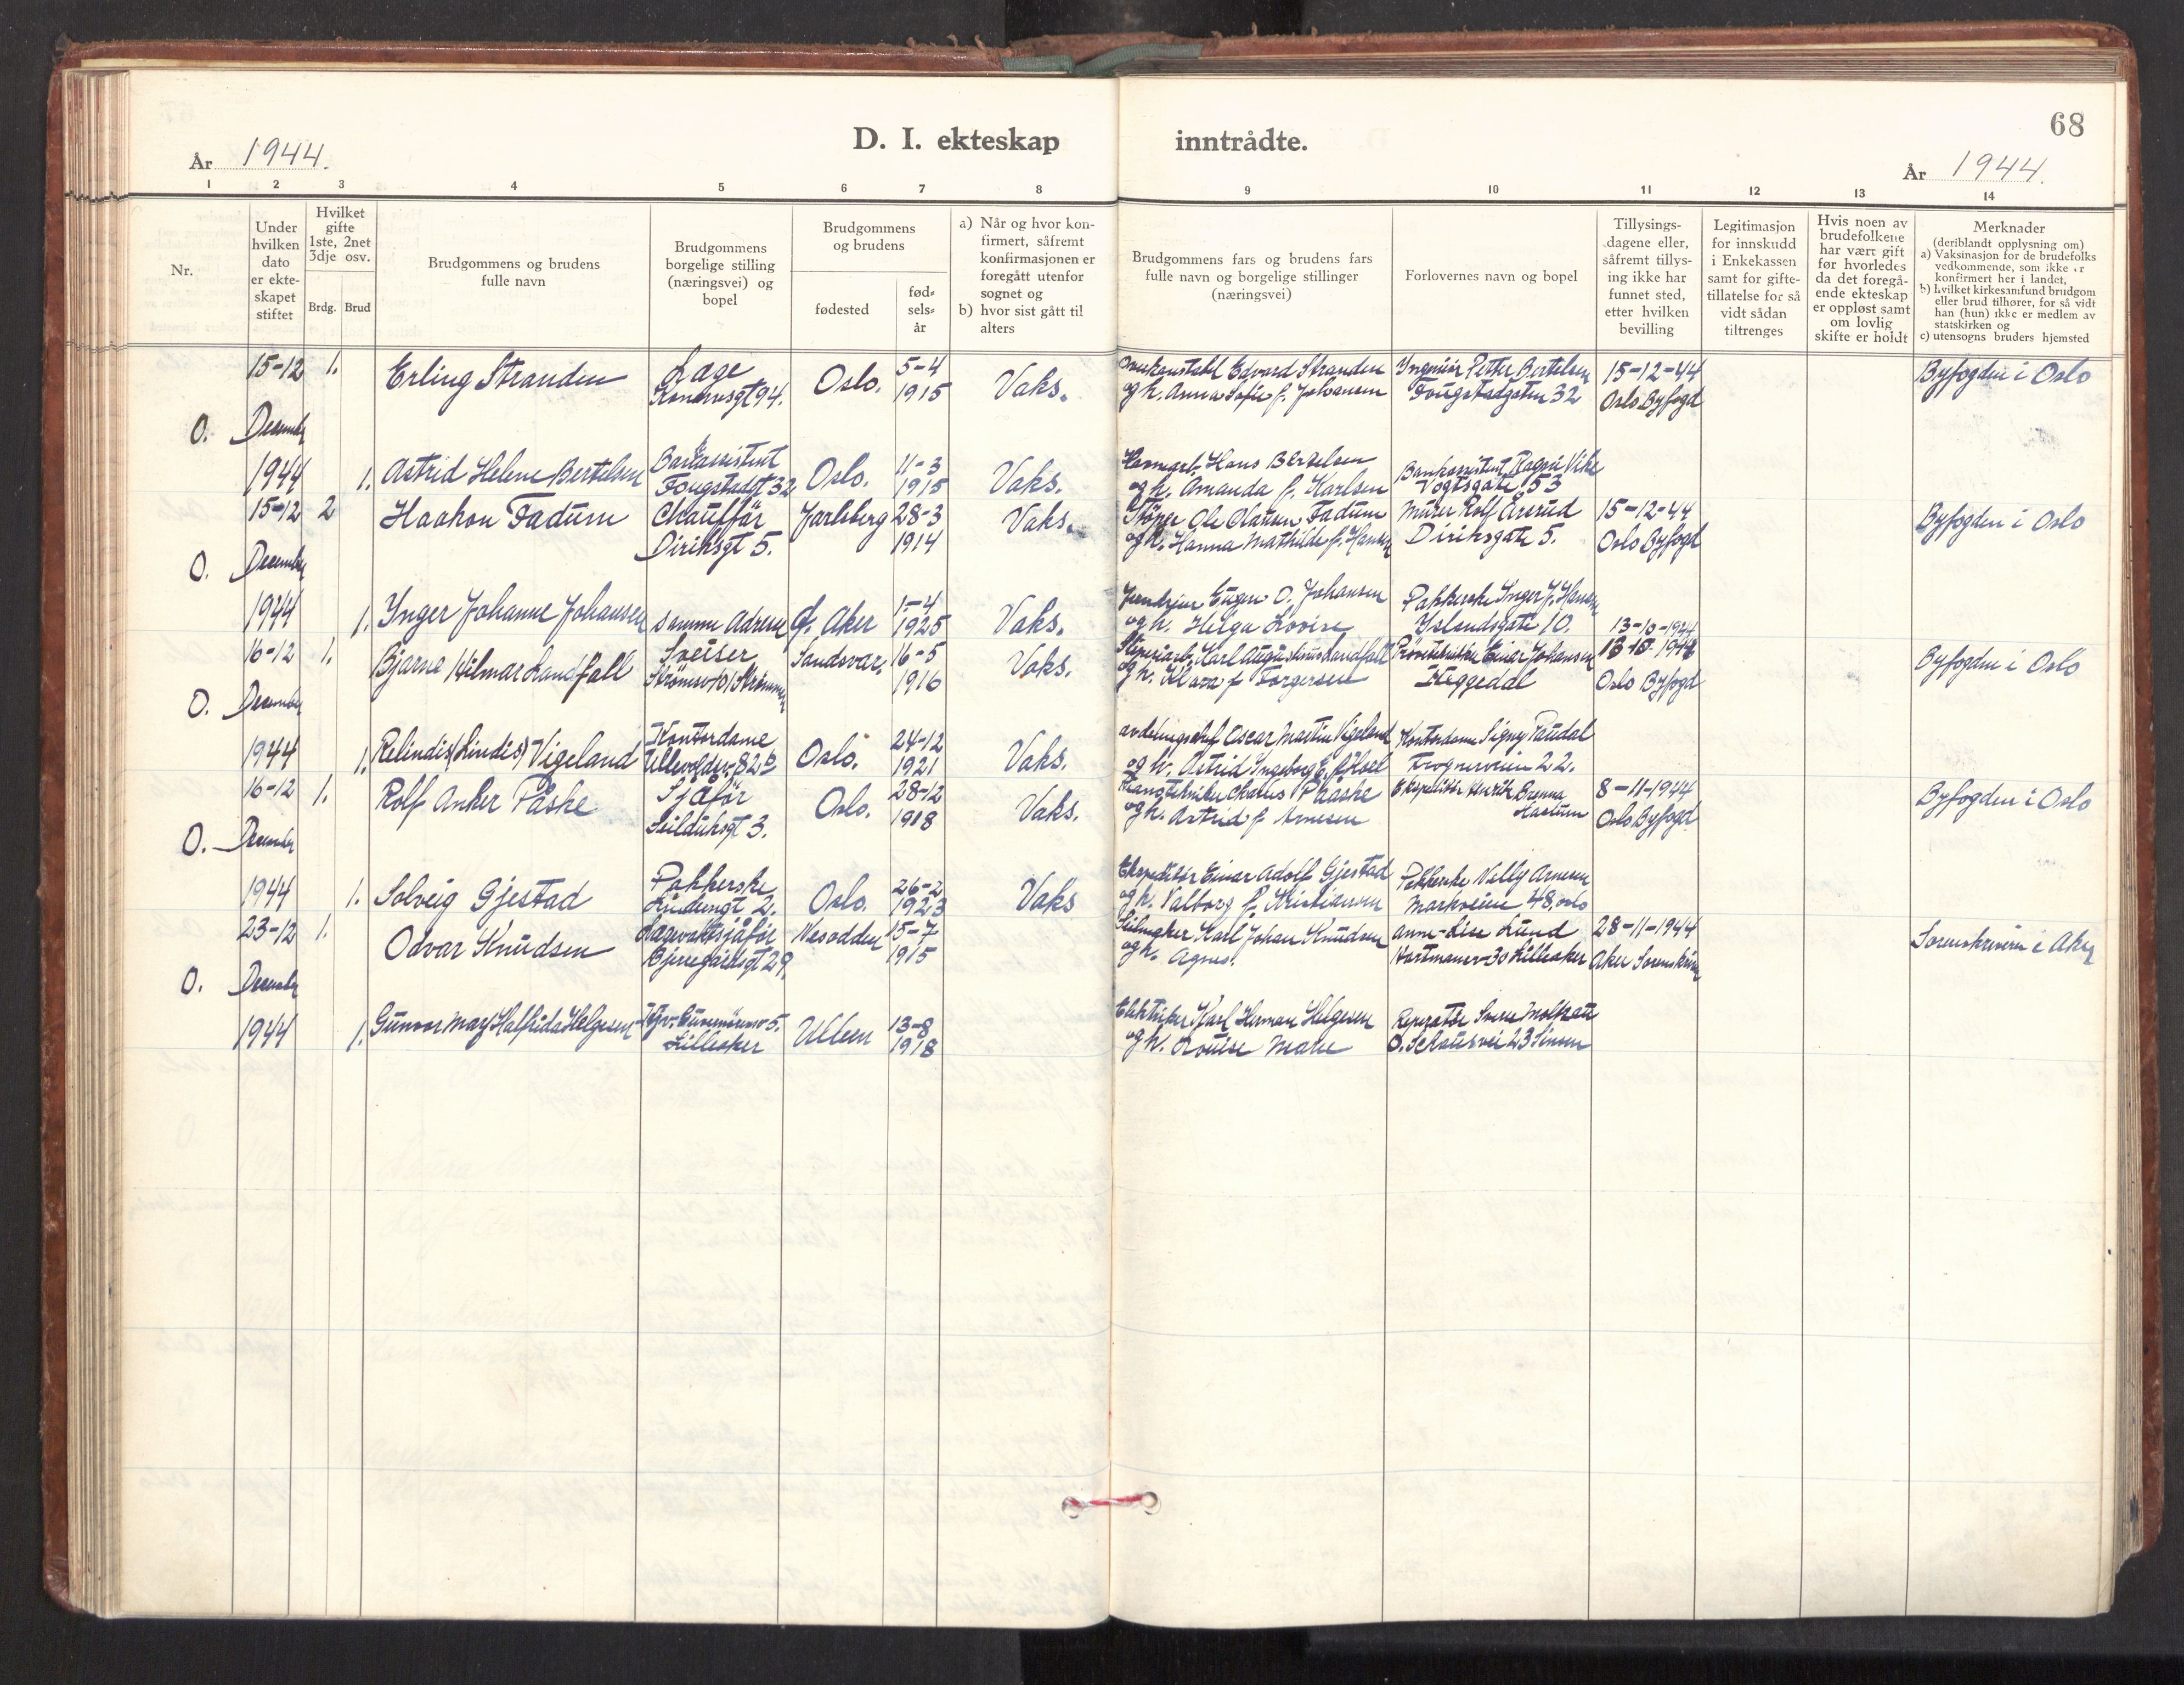 D. I. ekteskap inntrådte.
68
År 1944.
År 1944.
1 2 3 4 5 6 7 8 9 10 11 12 13 14
Nr.
Under hvilken dato er ekte-skapet stiftet
Hvilket gifte 1ste, 2net 3dje osv.
Brdg. Brud
Brudgommens og brudens fulle navn
Brudgommens borgelige stilling (næringsvei) og bopel
Brudgommens og brudens
fødested
fød-sels-år
a) Når og hvor kon-firmert, såfremt konfirmasjonen er foregått utenfor sognet og
b) hvor sist gått til alters
Brudgommens fars og brudens fars fulle navn og borgelige stillinger (næringsvei)
Forlovernes navn og bopel
Tillysings-dagene eller, såfremt tillys-ing ikke har funnet sted, etter hvilken bevilling
Legitimasjon for innskudd i Enkekassen samt for gifte-tillatelse for så vidt sådan tiltrenges
Hvis noen av brudefolkene har vært gift før hvorledes da det foregå-ende ekteskap er oppløst samt om lovlig skifte er holdt
Merknader
(deriblandt opplysning om)
a) Vaksinasjon for de brudefolks vedkommende, som ikke er konfirmert her i landet,
b) hvilket kirkesamfund brudgom eller brud tilhører, for så vidt han (hun) ikke er medlem av statskirken og
c) utensogns bruders hjemsted
15-12 1. Erling Stranden Oslo. 5-4 Vaks. Edvard Stranden Ingeniør Petter Bertelsen 15-12-44 Byfogden i Oslo
1915 og h. Anna Sofie f. Johansen Fougstadgaten 32 Oslo Byfogd
O. December
1944 1. Astrid Helene Bertelsen Fougstadgt 32 Oslo. 11-3 Vaks. Hans Bertelsen
1915 og h. Amanda f. Karlsen Vogtsgate 53
15-12 2 Haakon Fadum Chauffør Jarlsberg 28-3 Vaks. Støper Ole Olausen Fadum Murer Rolf Årsrud 15-12-44 Byfogden i Oslo
Diriksgt 5. 1914 og h. Hanna Mathilde f. Hansen Diriksgate 5. Oslo Byfogd
O. December
1944 1. Inger Johanne Johansen samme Adresse Aker 1-4 Vaks. Eugen O. Johansen Pakkerske Inger J. Hansen
1925 og h. Helga Lovise Islandsgate 10. 13-10-1944
16-12 1. Bjarne Hilmar Landfall Sveiser Sandsvær 16-5 Vaks. Karl Augustinus Landfall Einar Johansen Byfogden i Oslo
1916 og h. Klara f Torgersen Heggedal Oslo Byfogd
O. December
1944 1. Relindis (Lindis) Vigeland Kontordame Oslo. 24-12 Vaks. avdelingschef Oscar Martin Vigeland Kontordame Signy Paudal
1921 og h. Astrid Ingeborg Frognerveien 22.
16-12 1. Rolf Anker Påske Sjåfør Oslo. 28-12 Vaks. Påaske Ekspeditør Henrik 8-11-1944 Byfogden i Oslo
Seilduksgt 3. 1918 og h. Astrid f Arnesen Oslo Byfogd
O. December
1944 1. Solveig Gjestad Pakkerske Oslo. 26-2 Vaks Ekspeditør Einar Adolf Gjestad Pakkerske Vally Arnesen
1923 og h. Valborg f. Kristiansen Markveien 48, Oslo
23-12 1. Odvar Knudsen Nesodden 15-7 Seilmaker Karl Johan Knudsen Anne-Lise Lund 28-11-1944 Sorenskriveren i Aker
Bjerregårdsgt 29. 1915 og h. Agnes. Lilleaker Aker Sorenskriver
O. December
1944 1. Gunvor May Halfrida Helgesen Ullern 13-8 Elektriker Karl Herman Helgesen Reperatør
Lilleaker 1918 og h. Louise Marie